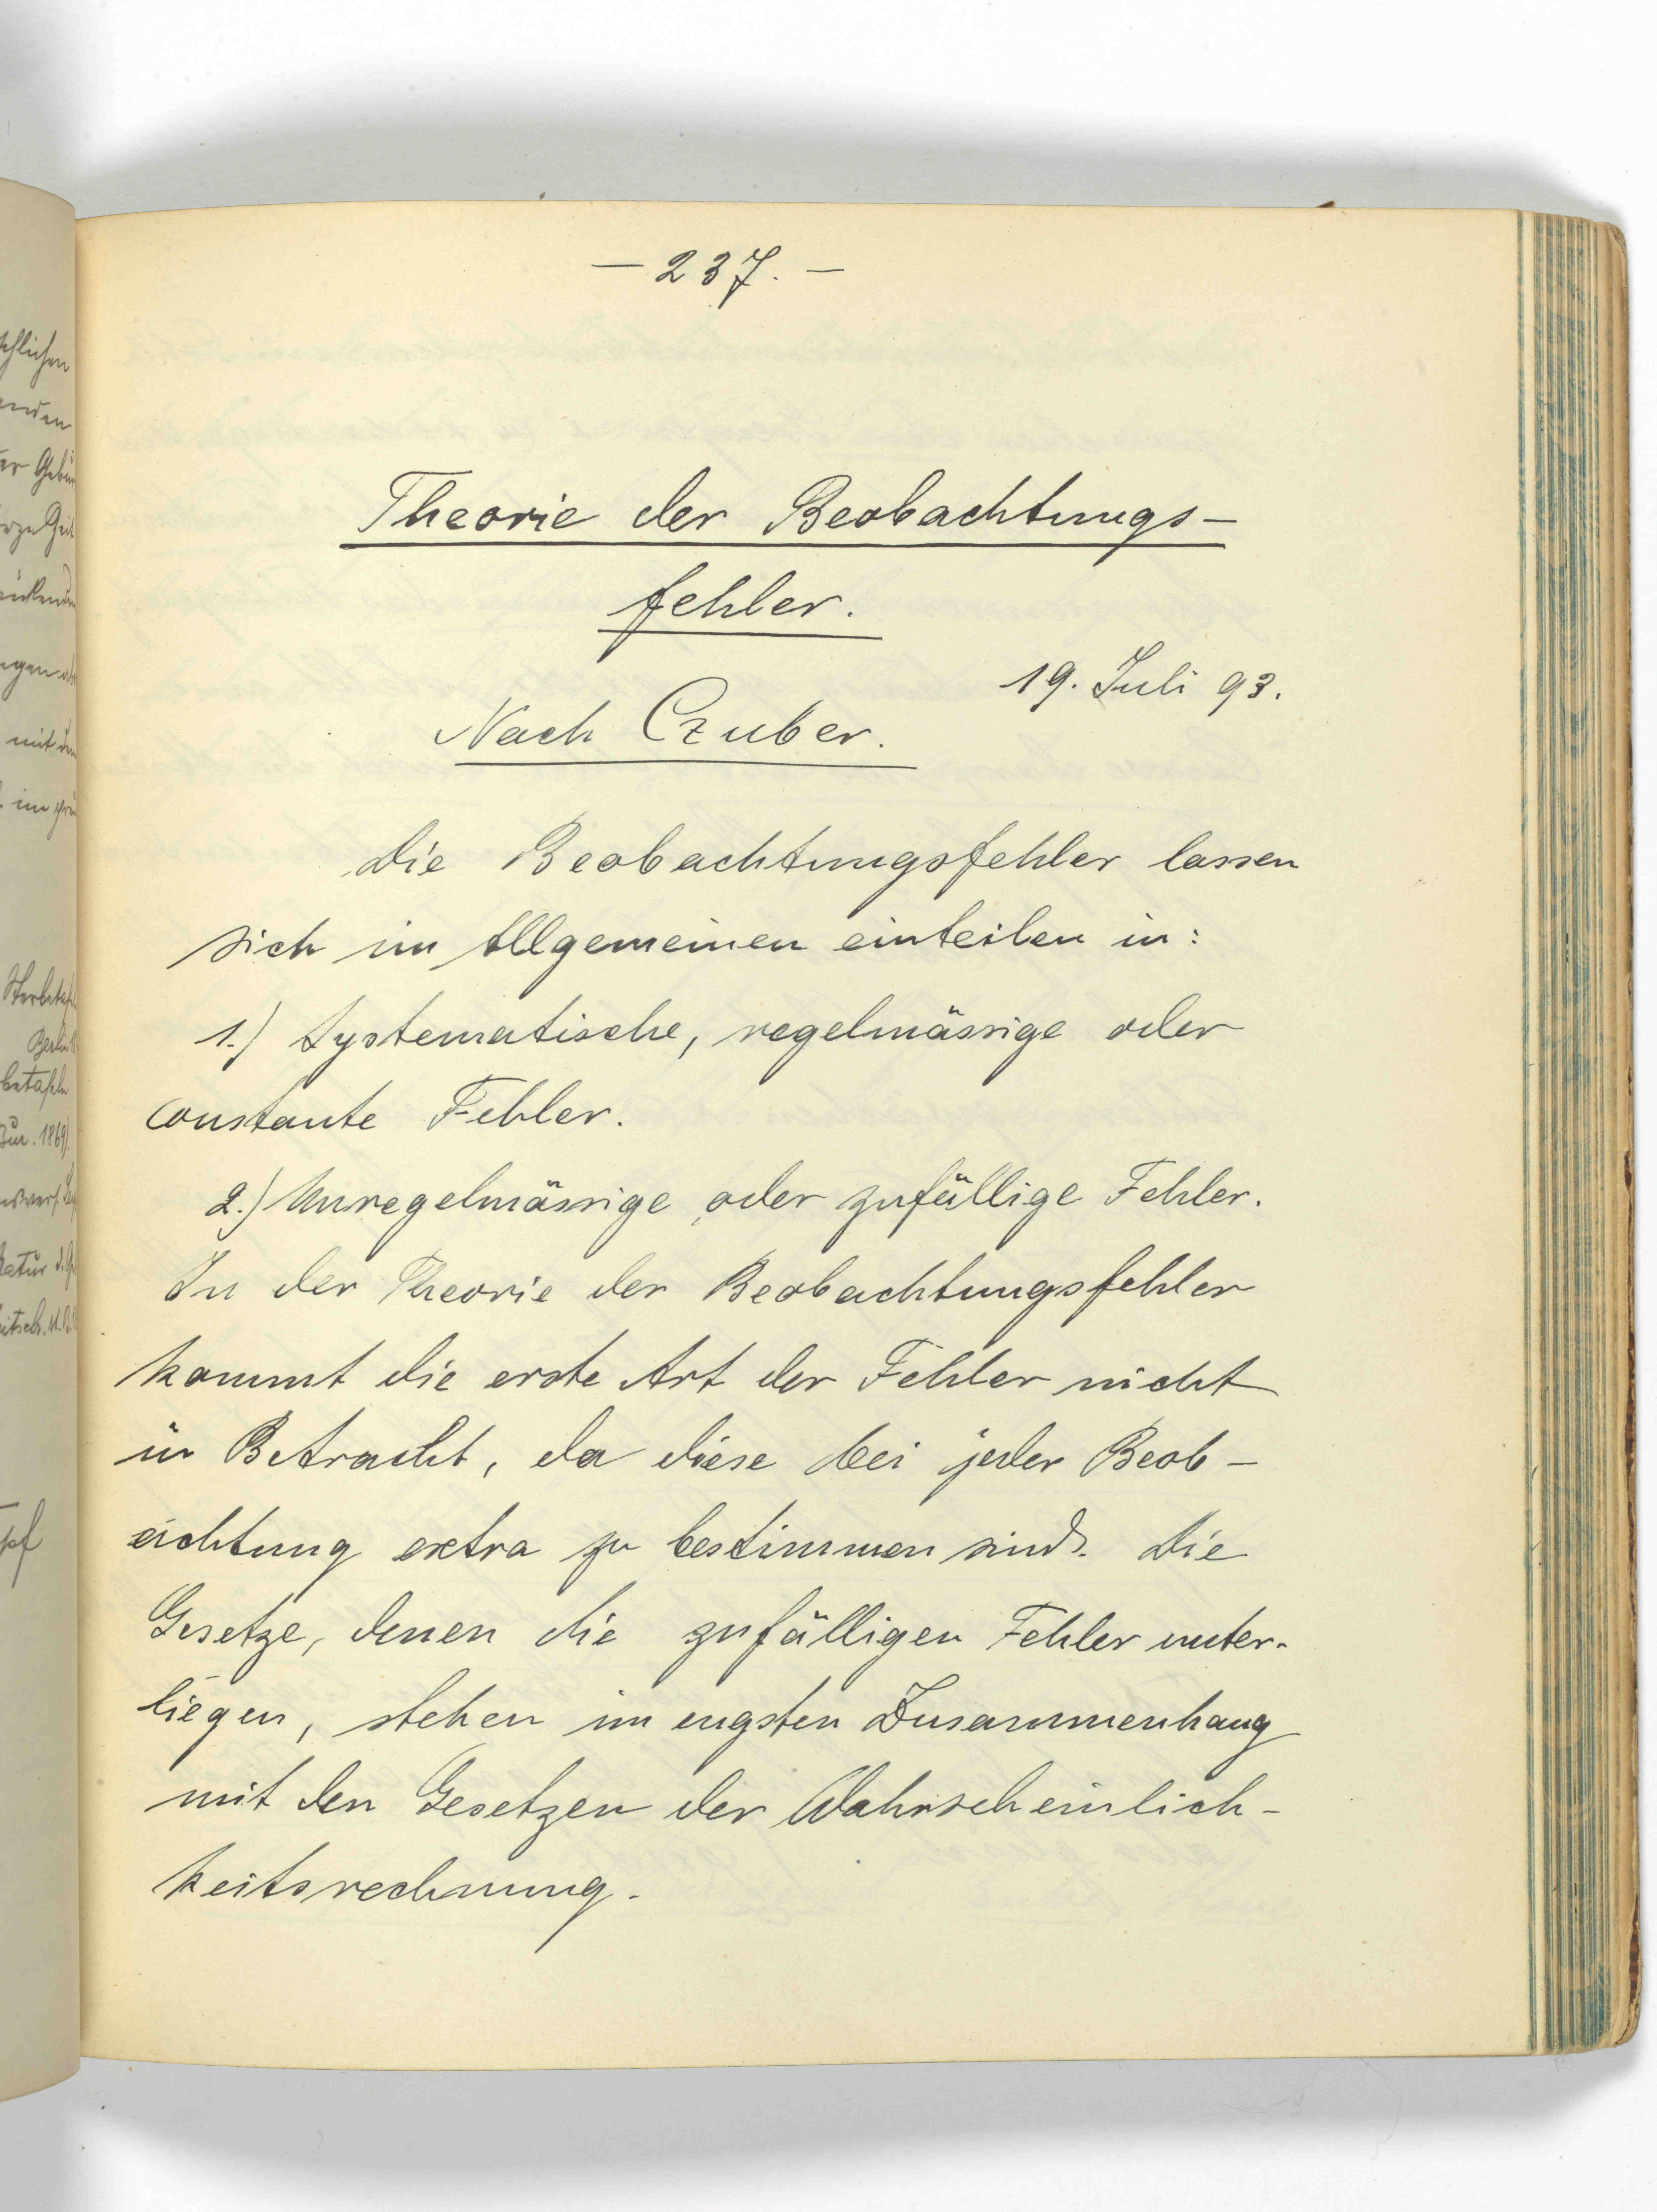 — 237. —
Theorie der Beobachtungs-
fehler.
19. Juli 93.
Nach Czuber.
Die Beobachtungsfehler lassen
sich im Allgemeinen einteilen in:
1.) Systematische, regelmässige oder
constante Fehler.
2.) Unregelmässige oder zufällige Fehler.
In der Theorie der Beobachtungsfehler
kommt die erste Art der Fehler nicht
in Betracht, da diese bei jeder Beob-
achtung extra zu bestimmen sind. Die
Gesetze, denen die zufälligen Fehler unter-
liegen, stehen im engsten Zusammenhang
mit den Gesetzen der Wahrscheinlich-
keitsrechnung.